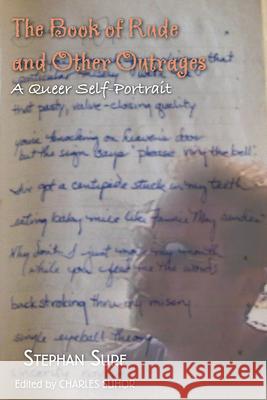 The Book of Rude
and Other Outrages
A Queer Self-Portrait
that
that pasty, valve-closing quality
you're knocking on heaven's door
but the sign says "please ring the bell".
I've got a centipede stuck in my teeth
eating baby mice like
Why don't I just wash my mouth
(while you feed me the words
backstroking through my misery
single eyeball theory
STEPHAN SURE
Edited by CHARLES SUHOR